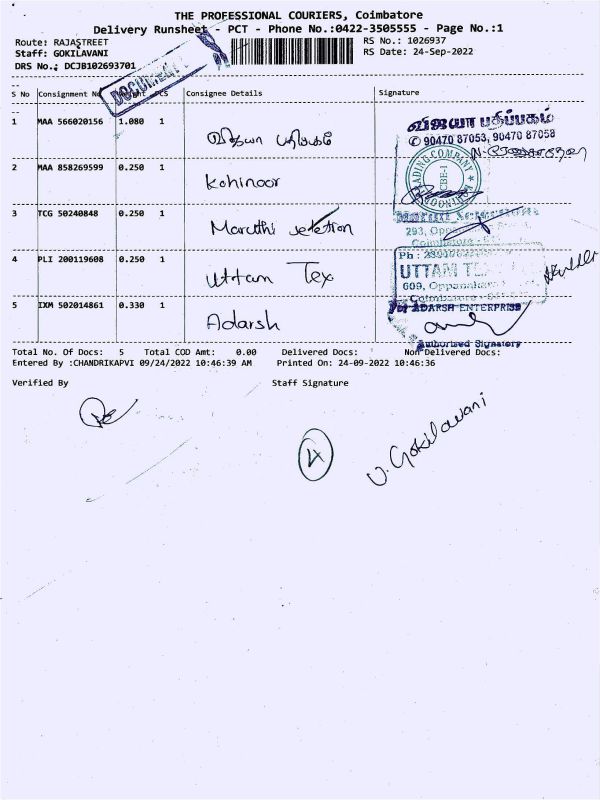 THE PROFESSIONAL COURIERS, Coimbatore
Delivery Runsheet - PCT - Phone No.:0422-3505555 - Page No.:1
Route: RAJASTREET
RS No.: 1026937
Staff: GOKILAVANI
RS Date: 24-Sep-2022
DRS No.: DCJB102693701
DOCUMENT
S No Consignment PCS Consignee Details Signature
1 MAA 566020156 1.080 1 விஜயா பதிப்பகம்
விஜயா பதிப்பகம்
90470 87053, 90470 87058
2 MAA 858269599 0.250 1 Kohinoor
TRADING COMPANY
CBE-1
3 TCG 50240848 0.250 1 Maruthi selection
293,
Coimbatore
4 PLI 200119608 0.250 1 Uttam Tex
Ph :
UTTAM
609,
Coimbatore
5 IXM 502014861 0.330 1 Adarsh
For ADARSH ENTERPRISE
Authorised Signatory
Total No. Of Docs: 5 Total COD Amt: 0.00 Delivered Docs: Non Delivered Docs:
Entered By :CHANDRIKAPVI 09/24/2022 10:46:39 AM Printed On: 24-09-2022 10:46:36
Verified By Staff Signature
4
U. Gokilavani